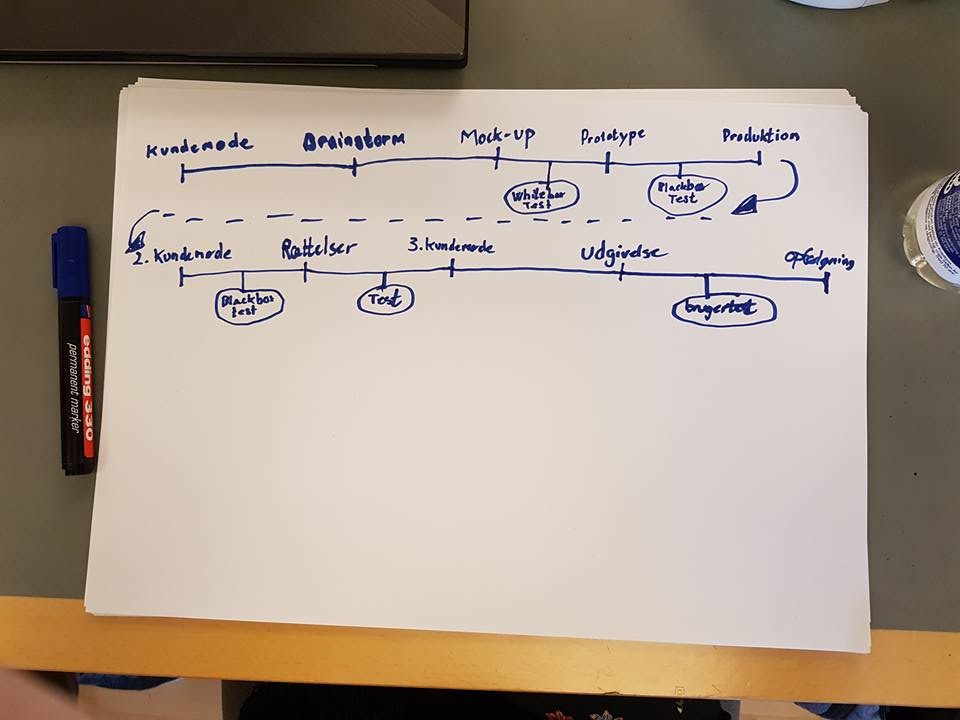 Kundemøde Brainstorm Mock-up Prototype Produktion
Whitebox
Test
Blackbox
Test
2. Kundemøde Rettelser 3. Kundemøde Udgivelse Opfølgning
Blackbox
test
Test
brugertest
edding 330
permanent marker